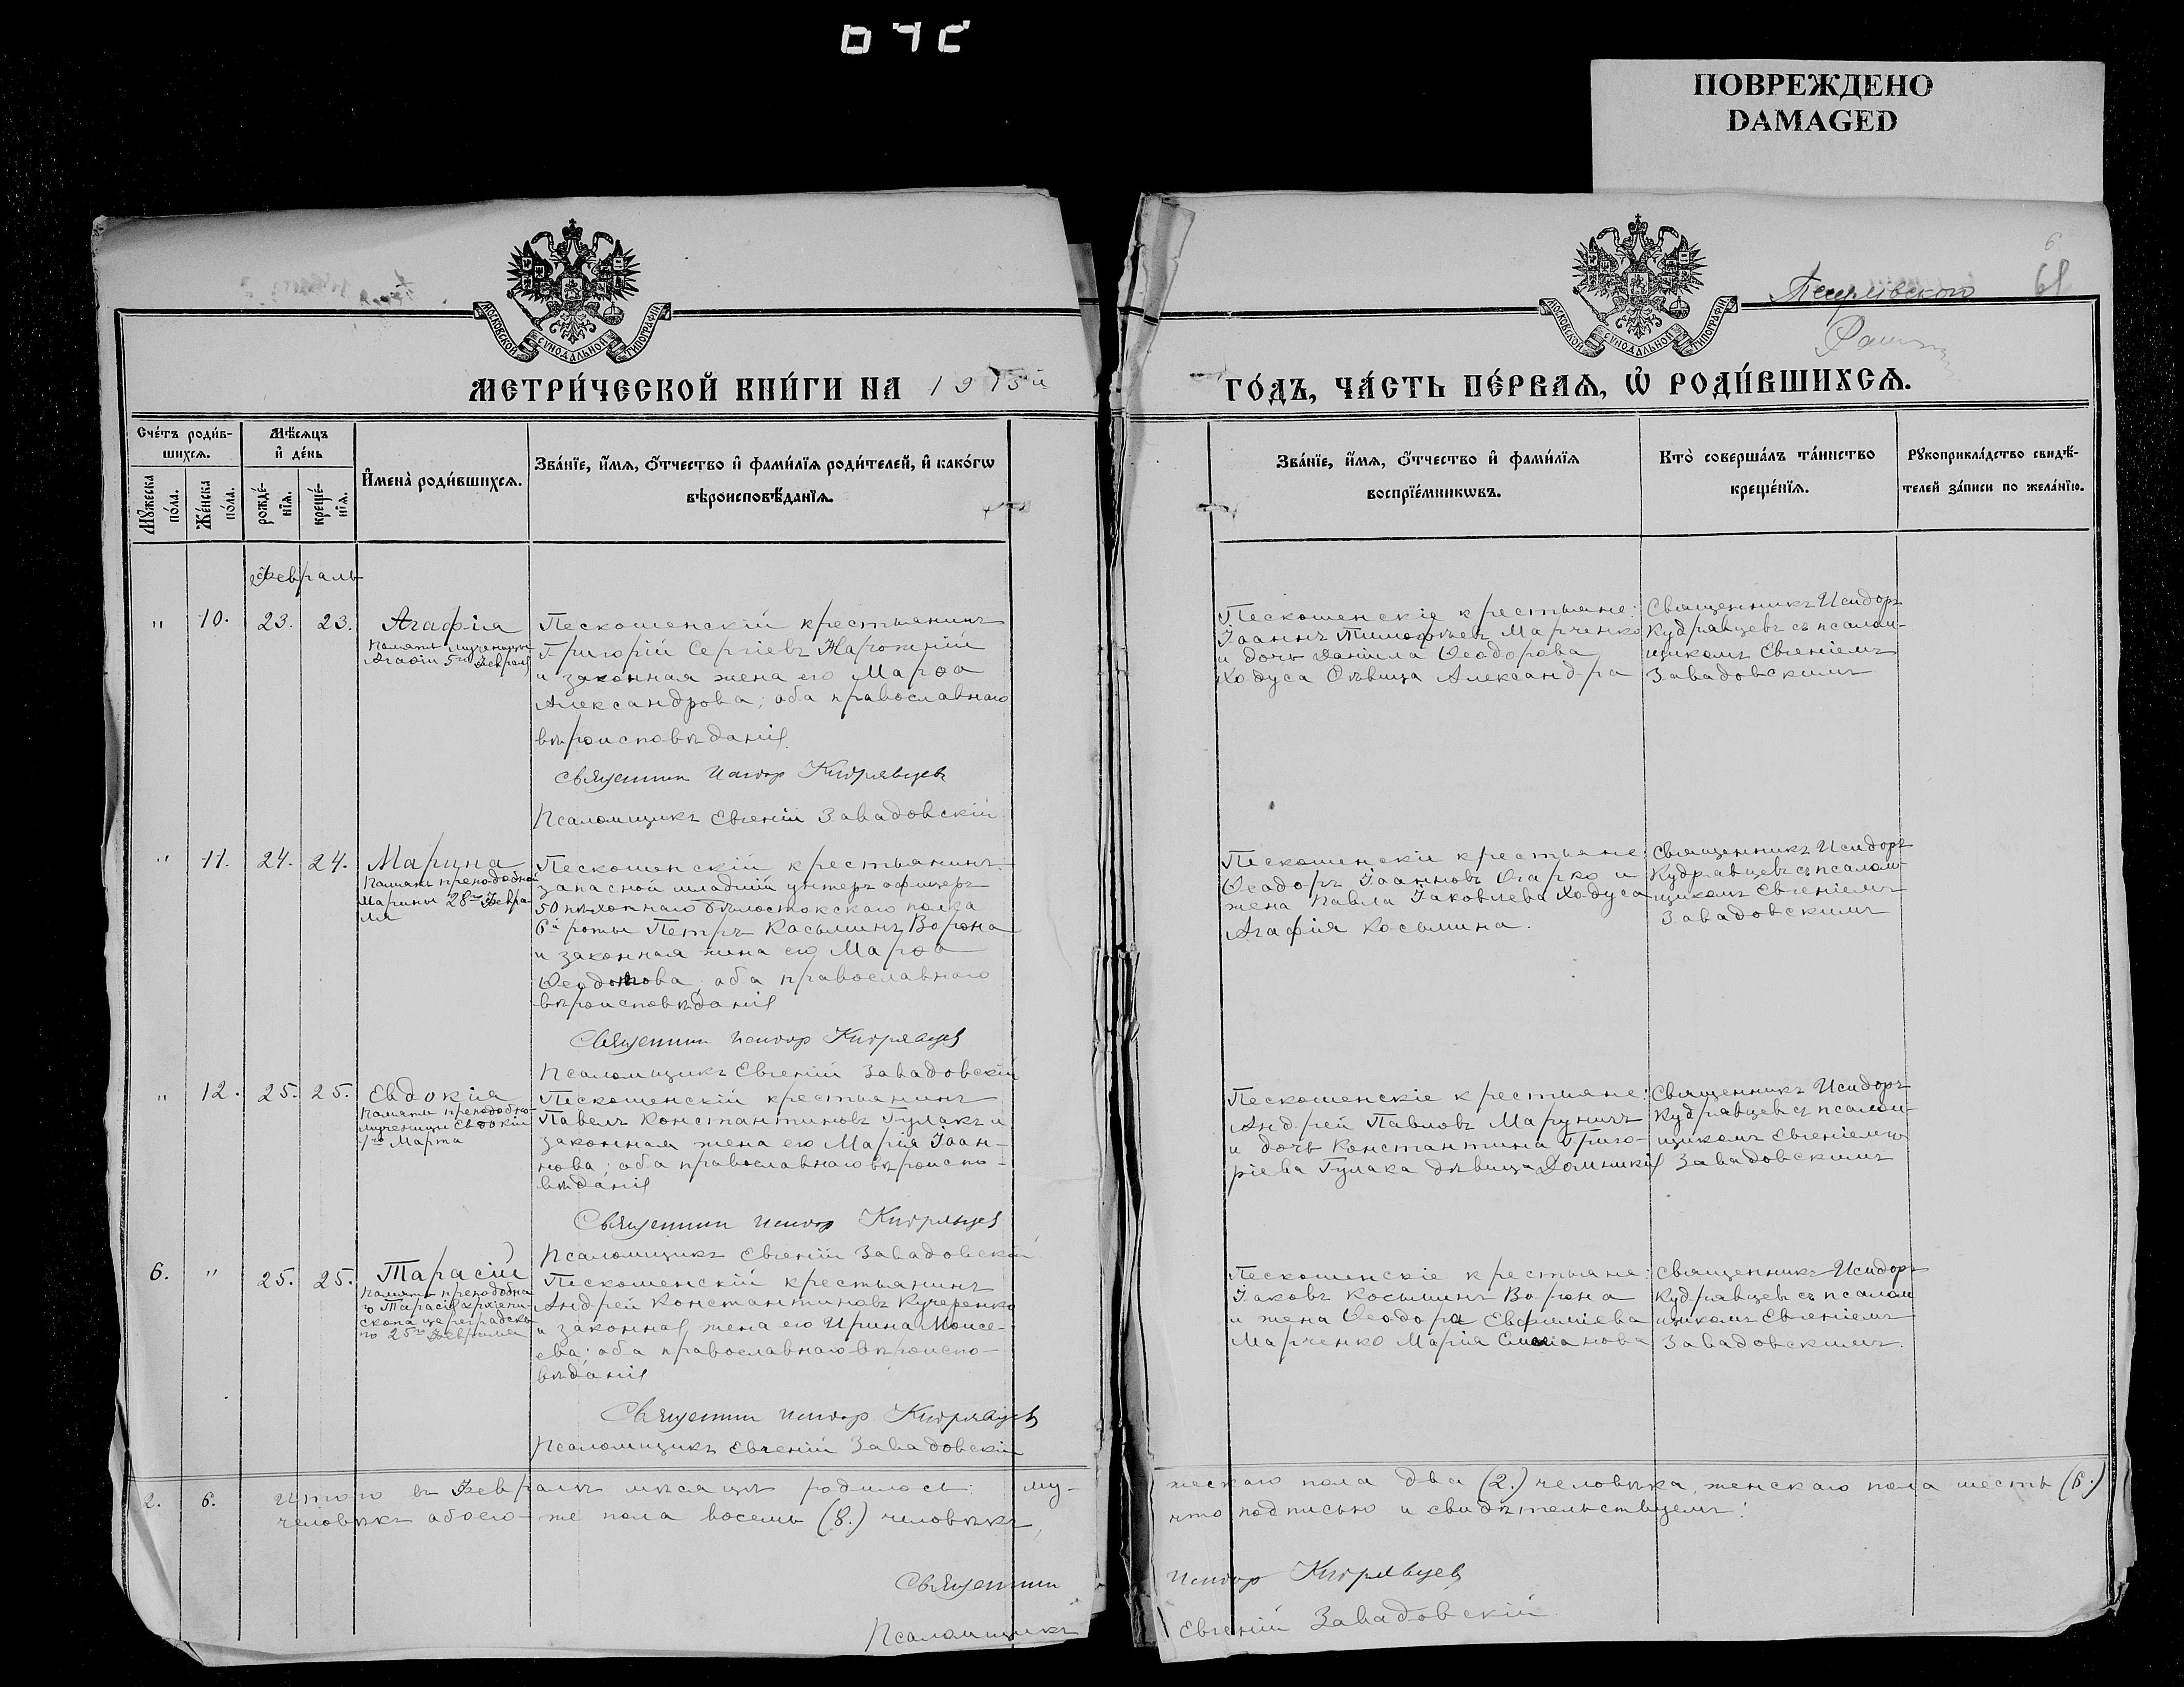 ПОВРЕЖДЕНО
DAMAGED
6
МОСКОВСКОЙ СѴНОДАЛЬНОЙ ТИПОГРАФІИ
МОСКОВСКОЙ СѴНОДАЛЬНОЙ ТИПОГРАФІИ
МЕТРИ́ЧЕСКОЙ КНИ́ГИ НА 1915й
ГО́ДЪ, ЧА́СТЬ ПЕ́РВАѦ, Ѡ҆ РОДИ́ВШИХСѦ.
Сче́тъ роди́в-
шихсѧ.
Мꙋ́жеска
по́ла.
Же́нска
по́ла.
Мѣ́сѧцъ
и҆ де́нь
рожде́-
нїѧ.
креще́-
нїѧ.
И҆мена̀ роди́вшихсѧ.
Зва́нїе, и҆́мѧ, ѻ҆́тчество и҆ фами́лїѧ роди́телей, и҆ како́гѡ
вѣроисповѣ́данїѧ.
Зва́нїе, и҆́мѧ, ѻ҆́тчество и҆ фами́лїѧ
воспрїе́мникѡвъ.
Кто̀ соверша́лъ та́инство
креще́нїѧ.
Рꙋкоприкла́дство свидѣ́-
телей за́писи по жела́нїю.
Февраль
" 10. 23. 23.
Агафія
Память мученицы
Агафіи 5го Февраля
Пескошенскій крестьянинъ
Григорій Сергіевъ Нарожній
и законная жена его Марѳа
Александрова; оба православнаго
вѣроисповѣданія.
Священник Исидор Кудрявцев
Псаломщикъ Евгеній Завадовскій
Пескошенскіе крестьяне:
Іоаннъ Тимоѳеевъ Марченко
и дочь Даніила Ѳеодорова
Ходуса дѣвица Александра
Священникъ Исидоръ
Кудрявцевъ съ псалом-
щикомъ Евгеніемъ
Завадовскимъ
" 11. 24. 24.
Марина
Память преподобной
Марины 28го Февра-
ля
Пескошенскій крестьянинъ
запасной младшій унтеръ офицеръ
50 пѣхотнаго Бѣлостокскаго полка
6й роты Петръ Касьминъ Ворона
и законная жена его Марѳа
оба православнаго
вѣроисповѣданія
Священник Исидор Кудрявцев
Псаломщикъ Евгеній Завадовскій
Пескошенскіе крестьяне:
Ѳеодоръ Іоанновъ Огарко и
жена Павла Іаковлева Ходуса
Агафія Косьмина.
Священникъ Исидоръ
Кудрявцевъ съ псалом-
щикомъ Евгеніемъ
Завадовскимъ
" 12. 25. 25.
Евдокія
Память преподобно-
мученицы Евдокіи
1го Марта
Пескошенскій крестьянинъ
Павелъ Константиновъ Гулакъ и
законная жена его Марія Іоан-
нова; оба православнаго вѣроиспо-
вѣданія
Священник Исидор Кудрявцев
Псаломщикъ Евгеній Завадовскій
Пескошенскіе крестьяне:
Андрей Павловъ Маруничъ
и дочь Константина Григо-
ріева Гулака дѣвица Домникія
Священникъ Исидоръ
Кудрявцевъ съ псалом-
щикомъ Евгеніемъ
Завадовскимъ
6. " 25. 25.
Тарасій
Память преподобна-
го Тарасія архіепи-
скопа цареградска-
го 25го Февраля
Пескошенскій крестьянинъ
Андрей Константиновъ Кучеренко
и законная жена его Ирина Моисе-
ева; оба православнаго вѣроиспо-
вѣданія
Священник Исидор Кудрявцев
Псаломщикъ Евгеній Завадовскій
Пескошенскіе крестьяне:
Іаковъ Косьминъ Ворона
и жена Ѳеодора Евфиміева
Марченко Марія
Священникъ Исидоръ
Кудрявцевъ съ псалом
щикомъ Евгеніемъ
Завадовскимъ.
2. 6. Итого въ Февралѣ мѣсяцѣ родилось: му-
жескаго пола два (2.) человѣка, женскаго пола шесть (6.)
человѣкъ обоего же пола восемь (8.) человѣкъ,
что подписью и свидѣтельствуемъ:
Священник Исидор Кудрявцев
Псаломщикъ Евгеній Завадовскій